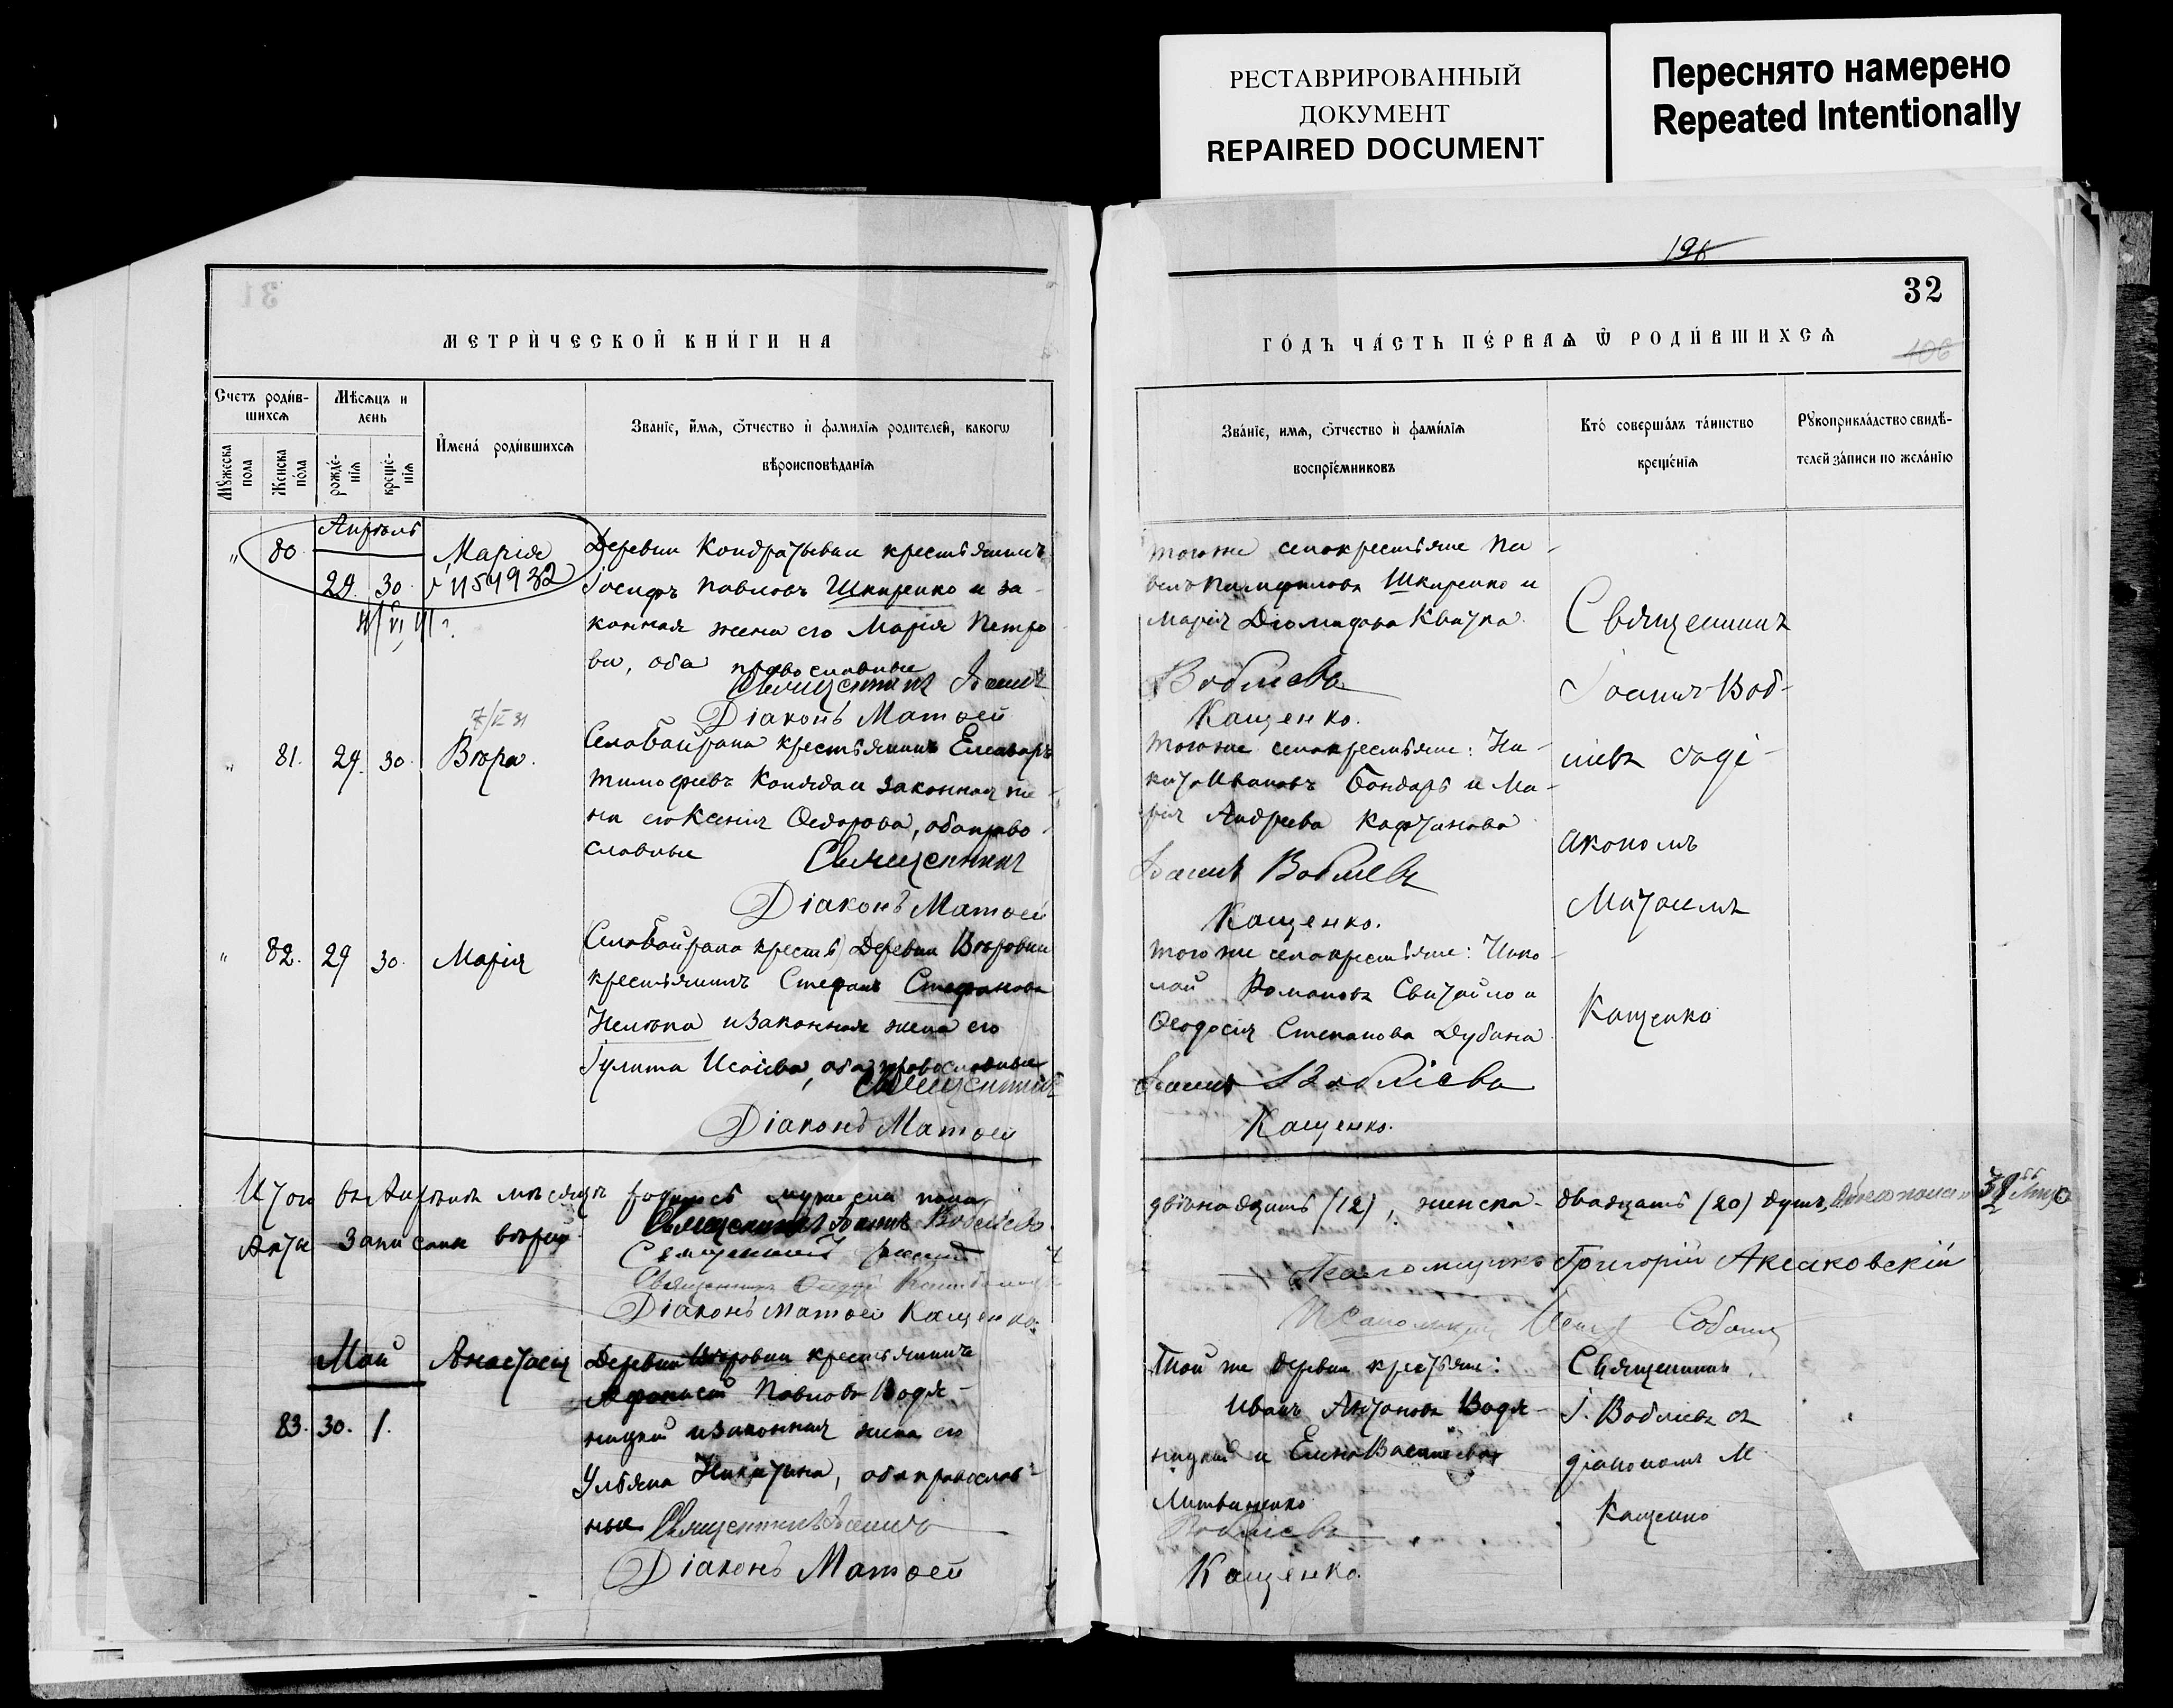 РЕСТАВРИРОВАННЫЙ
ДОКУМЕНТ
REPAIRED DOCUMENT
Переснято намерено
Repeated Intentionally
32
106
МЕТРИ́ЧЕСКОЙ КНИ́ГИ НА
Счетъ роди́в-
шихсѧ
Мѣсѧцъ и
день
Мꙋжеска
пола
Женска
по́ла
рожде́-
нїѧ
креще́-
нїѧ
И҆мена́ роди́вшихсѧ
Званїе, и҆мѧ, ѻ҆тчество и҆ фамилїѧ родителей, какогѡ
вѣроисповѣданїѧ
Апрѣль
80
29. 30.
Марія
V 1154932
Деревни Кондратьевки крестьянинъ
Іосифъ Павловъ Шкиренко и за-
конная жена его Марія Петро
ва, оба православные
Священникъ Іоаннъ
Діаконъ Матѳей
81. 29. 30.
Вѣра.
Села Байрака крестьянинъ Елеазаръ
Тимофѣевъ и законная же-
на его Ксенія Ѳедорова, оба право-
славные Священникъ
Діаконъ Матѳей
82. 29 30.
Марія
Села Байрака крестья) Деревни Вѣровки
крестьянинъ Стефанъ Стефановъ
и законная жена его
Іулита Исаіева, оба православные
Священникъ
Діаконъ Матѳей
Итого въ Апрѣлѣ мѣсяцѣ родилось мужеска пола
Акты записаны вѣрно. Священникъ Іоаннъ Воблiевъ
Священникъ
Священникъ
Діаконъ Матѳей Кащенко.
Май
83. 30. 1.
Анастасія
Деревни Вѣровки крестьянинъ
Афанасій Павловъ Водя-
ницкій и законная жена его
Ульяна Никитина, оба православ-
ные Священникъ Іоаннъ
Діаконъ Матѳей
ГО́ДЪ ЧА́СТЬ ПЕ́РВАѦ Ѿ РОДИ́ВШИХСѦ
Зва́нїе, имѧ, ѻ҆тчество и҆ фами́лїѧ
воспрїе́мниковъ
Кто́ соверша́лъ та́инство
креще́нїѧ
Рꙋкоприкла́дство свидѣ́-
телей за́писи по жела́нїю
того же села крестьяне Па-
велъ Памфиловъ Шкиренко и
Марія Діомидова Квитка
Воблiевъ
Кащенко.
того же села крестьяне: Ни-
кита Ивановъ Бондарь и Ма-
рія Андреева Кафтанова
Іоаннъ Воблiевъ
Кащенко.
того же села крестьяне: Нико-
лай Романовъ Свитайло и
Ѳеодосія Степанова Дубина
Іоаннъ Воблiевъ
Кащенко.
Священникъ
Іоаннъ Воб-
ліевъ съ дi-
акономъ
Матѳеемъ
Кащенко
двѣнадцать (12), женска - двадцать (20) душъ,
Псаломщикъ Григорій Аксаковскій
Псаломщикъ
Той же деревни крестьяне:
Иванъ Антоновъ Водя-
ницкій и Елена Васильева
Литвиненко
Воблiевъ
Кащенко.
Священникъ
І. Воблiевъ съ
діакономъ М.
Кащенко